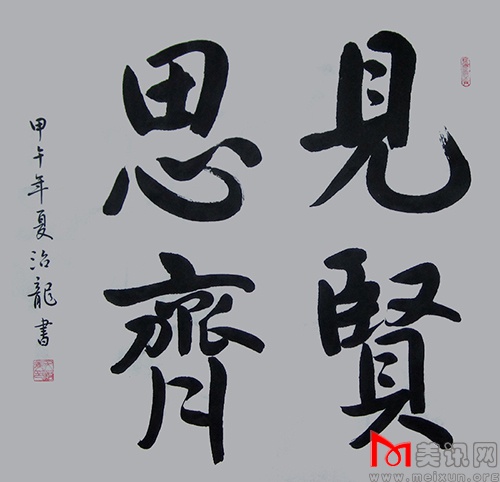 見賢
思齊
甲午年夏治龍書
美讯网
www.meixun.org